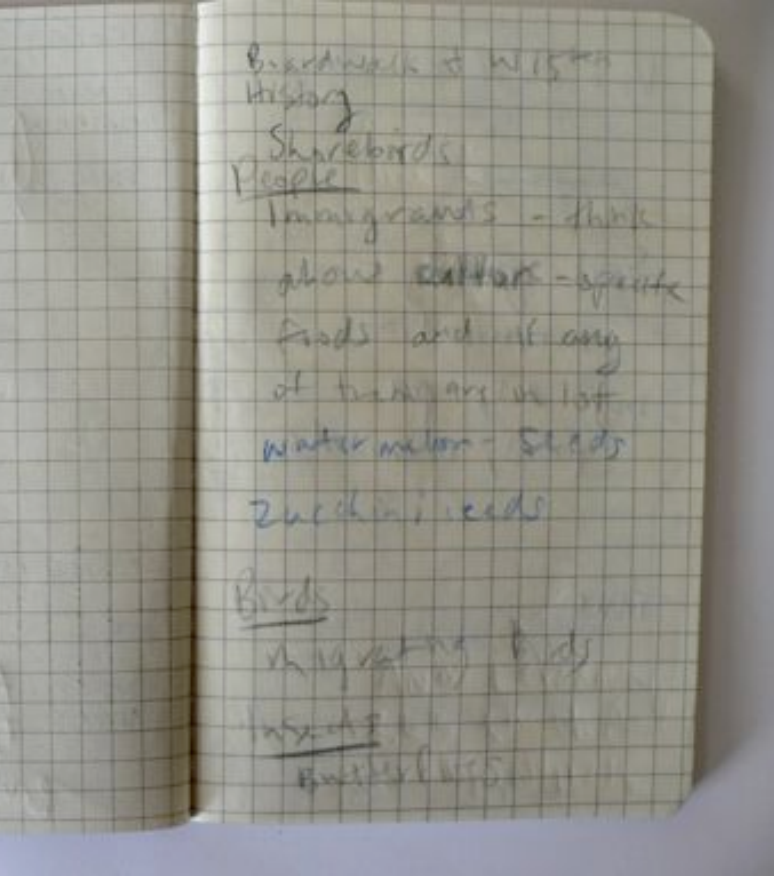 Boardwalk + W 15th
History
Shorebirds
People
Immigrants - think
about - 
foods and if any
of them are in lot
watermelon - seeds
Zucchini seeds
Birds
migrating birds
Insects
Butterflies